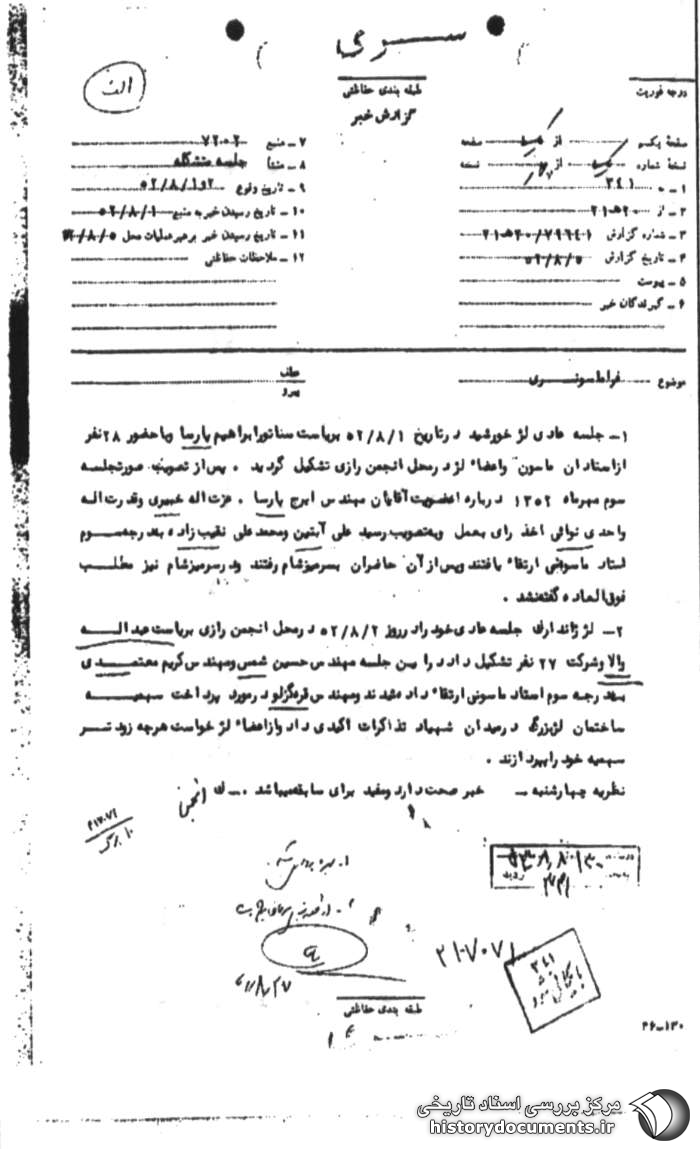 سری
الف
درجه فوریت
طبقه بندی حفاظتی
گزارش خبر
صفحه یکم از صفحه
نسخه شماره از نسخه
۱ - به ۳۴۱
۲ - از ۲۰ه۲۱
۳ - شماره گزارش ۲۰/۷۹۶۴۱ه۲۱
۴ - تاریخ گزارش ۵۲/۸/۵
۵ - پیوست
۶ - گیرندگان خبر
۷ - منبع ۷۲۰۲
۸ - منشأ جلسه متشکله
۹ - تاریخ وقوع ۱و۵۲/۸/۲
۱۰ - تاریخ رسیدن خبر به منبع ۵۲/۸/۱
۱۱ - تاریخ رسیدن خبر به رهبر عملیات محل ۵۲/۸/۵
۱۲ - ملاحظات حفاظتی
موضوع فراماسونری
عطف
پیرو
۱- جلسه عادی لژ خورشید در تاریخ ۵۲/۸/۱ بریاست سناتور ابراهیم پارسا و با حضور ۲۸ نفر
از استادان ماسون و اعضاء لژ در محل انجمن رازی تشکیل گردید . پس از تصویب صورتجلسه
سوم مهرماه ۱۳۵۲ درباره عضویت آقایان مهندس ایرج پارسا . عزت اله خبیری و قدرت اله
واحدی نوائی اخذ رای بعمل و بتصویب رسید علی آبتین و محمد علی نقیب زاده بدرجه سوم
استاد ماسونی ارتقاء یافتند و پس از آن حاضران بسر میز شام رفتند و در سر میز شام نیز مطلب
فوق العاده گفته نشد .
۲- لژ ژاندارک جلسه عادی خود را در روز ۵۲/۸/۲ در محل انجمن رازی بریاست عبداله
والا و شرکت ۲۷ نفر تشکیل داد در این جلسه مهندس حسین شمس و مهندس کریم معتمدی
بدرجه سوم استاد ماسونی ارتقاء داده شدند و مهندس قره گزلو در مورد پرداخت سهمیه
ساختمان لژ بزرگ در میدان شهیاد تذاکرات اکیدی داد و از اعضاء لژ خواست هرچه زودتر
سهمیه خود را بپردازند .
نظریه چهارشنبه - خبر صحت دارد و مفید برای سابقه میباشد . ک انجمن
۲۱۷۰۷۱
۳۴۱
بایگانی شد
طبقه بندی حفاظتی
۲۶-۱۳۰
مرکز بررسی اسناد تاریخی
historydocuments.ir